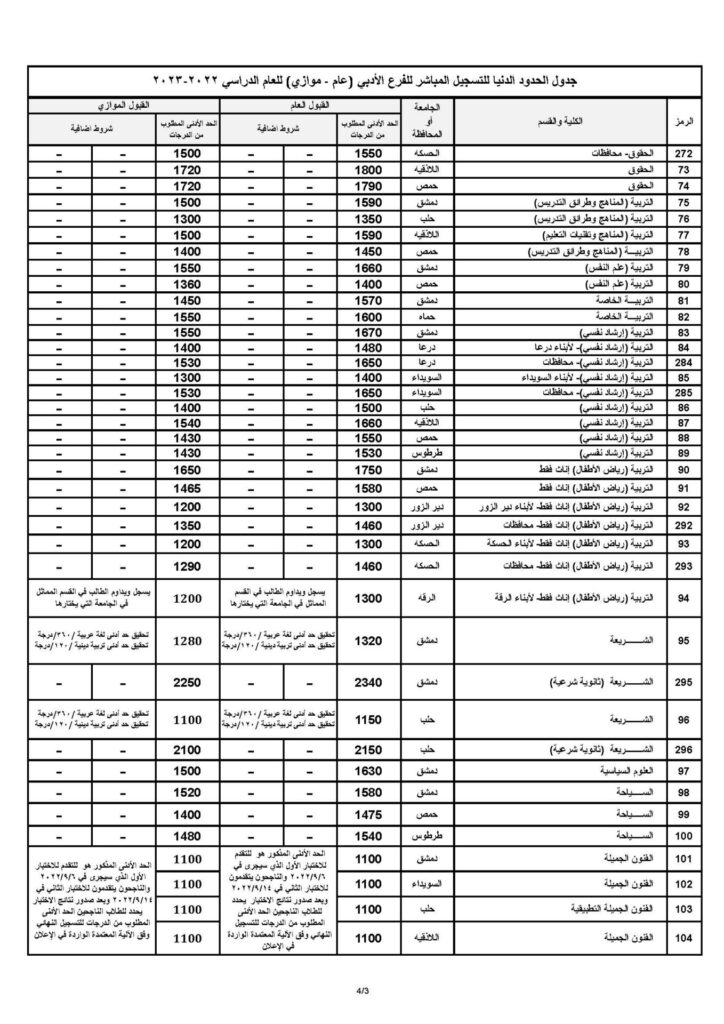 جدول الحدود الدنيا للتسجيل المباشر للفرع الأدبي (عام - موازي) للعام الدراسي ٢٠٢٢-٢٠٢٣
الرمز الكلية والقسم الجامعة أو المحافظة القبول العام القبول الموازي
الحد الأدنى المطلوب من الدرجات شروط اضافية الحد الأدنى المطلوب من الدرجات شروط اضافية
272 الحقوق- محافظات الحسكه 1550 - - 1500 - -
73 الحقوق اللاذقيه 1800 - - 1720 - -
74 الحقوق حمص 1790 - - 1720 - -
75 التربية (المناهج وطرائق التدريس) دمشق 1590 - - 1500 - -
76 التربية (المناهج وطرائق التدريس) حلب 1350 - - 1300 - -
77 التربية (المناهج وتقنيات التعليم) اللاذقيه 1590 - - 1500 - -
78 التربيـــة (المناهج وطرائق التدريس) حمص 1450 - - 1400 - -
79 التربية (علم النفس) دمشق 1660 - - 1550 - -
80 التربية (علم النفس) حمص 1400 - - 1360 - -
81 التربيـــة الخاصة دمشق 1570 - - 1450 - -
82 التربيـــة الخاصة حماه 1600 - - 1550 - -
83 التربية (إرشاد نفسي) دمشق 1670 - - 1550 - -
84 التربية (إرشاد نفسي)- لأبناء درعا درعا 1480 - - 1400 - -
284 التربية (إرشاد نفسي)- محافظات درعا 1650 - - 1530 - -
85 التربية (إرشاد نفسي)- لأبناء السويداء السويداء 1400 - - 1300 - -
285 التربية (إرشاد نفسي)- محافظات السويداء 1650 - - 1530 - -
86 التربية (إرشاد نفسي) حلب 1500 - - 1400 - -
87 التربية (إرشاد نفسي) اللاذقيه 1660 - - 1540 - -
88 التربية (إرشاد نفسي) حمص 1550 - - 1430 - -
89 التربية (إرشاد نفسي) طرطوس 1530 - - 1430 - -
90 التربية (رياض الأطفال) إناث فقط دمشق 1750 - - 1650 - -
91 التربية (رياض الأطفال) إناث فقط حمص 1580 - - 1465 - -
92 التربية (رياض الأطفال) إناث فقط- لأبناء دير الزور دير الزور 1300 - - 1200 - -
292 التربية (رياض الأطفال) إناث فقط- محافظات دير الزور 1460 - - 1350 - -
93 التربية (رياض الأطفال) إناث فقط- لأبناء الحسكة الحسكه 1300 - - 1200 - -
293 التربية (رياض الأطفال) إناث فقط- محافظات الحسكه 1460 - - 1290 - -
94 التربية (رياض الأطفال) إناث فقط- لأبناء الرقة الرقه 1300 يسجل ويداوم الطالب في القسم المماثل في الجامعة التي يختارها 1200 يسجل ويداوم الطالب في القسم المماثل في الجامعة التي يختارها
95 الشـــــــريعة دمشق 1320 تحقيق حد أدنى لغة عربية /٣٦٠/درجة تحقيق حد أدنى تربية دينية /١٢٠/درجة 1280 تحقيق حد أدنى لغة عربية /٣٦٠/درجة تحقيق حد أدنى تربية دينية /١٢٠/درجة
295 الشـــــــريعة (ثانوية شرعية) دمشق 2340 - - 2250 - -
96 الشـــــــريعة حلب 1150 تحقيق حد أدنى لغة عربية /٣٦٠/درجة تحقيق حد أدنى تربية دينية /١٢٠/درجة 1100 تحقيق حد أدنى لغة عربية /٣٦٠/درجة تحقيق حد أدنى تربية دينية /١٢٠/درجة
296 الشـــــــريعة (ثانوية شرعية) حلب 2150 - - 2100 - -
97 العلوم السياسية دمشق 1630 - - 1500 - -
98 الســـــياحة دمشق 1580 - - 1520 - -
99 الســـــياحة حمص 1475 - - 1400 - -
100 الســـــياحة طرطوس 1540 - - 1480 - -
101 الفنون الجميلة دمشق 1100 1100
102 الفنون الجميلة السويداء 1100 1100
103 الفنون الجميلة التطبيقية حلب 1100 1100
104 الفنون الجميلة اللاذقيه 1100 1100
الحد الأدنى المذكور هو للتقدم
للاختبار الأول الذي سيجرى في
٢٠٢٢/٩/٦ والناجحون يتقدمون
للاختبار الثاني في ٢٠٢٢/٩/١٤
وبعد صدور نتائج الاختبار يحدد
للطلاب الناجحين الحد الأدنى
المطلوب من الدرجات للتسجيل
النهائي وفق الآلية المعتمدة الواردة
في الإعلان
الحد الأدنى المذكور هو للتقدم للاختبار
الأول الذي سيجرى في ٢٠٢٢/٩/٦
والناجحون يتقدمون للاختبار الثاني في
٢٠٢٢/٩/١٤ وبعد صدور نتائج الاختبار
يحدد للطلاب الناجحين الحد الأدنى
المطلوب من الدرجات للتسجيل النهائي
وفق الآلية المعتمدة الواردة في الإعلان
4/3